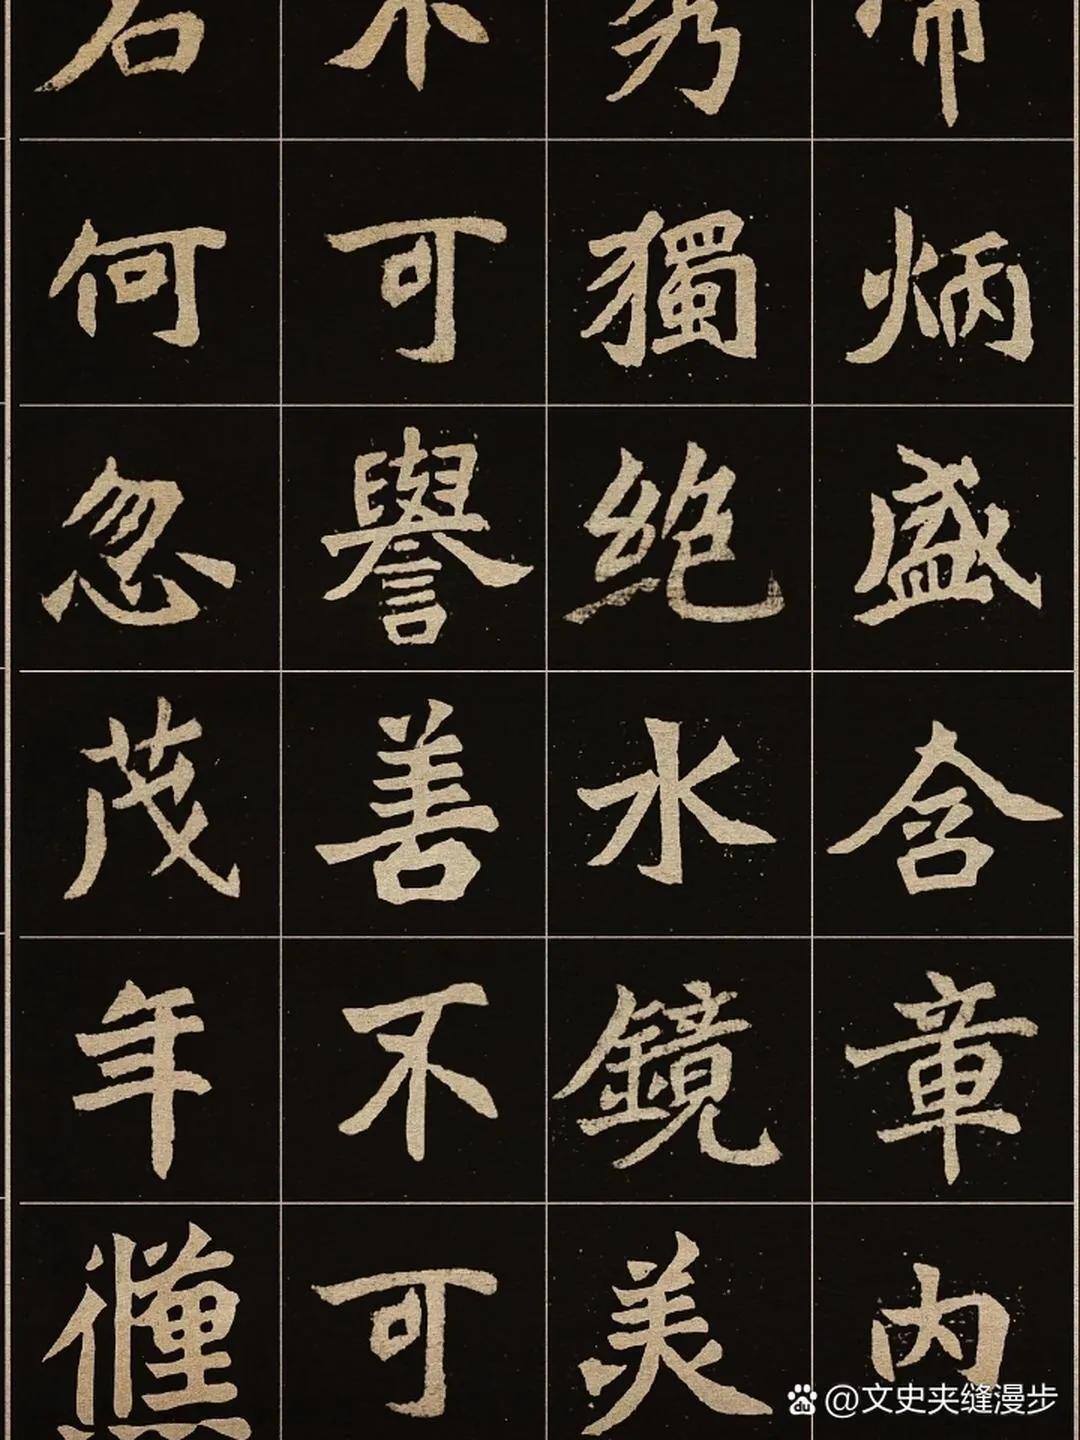 炳盛含章内
獨絶水鏡美
不可譽善不可
何忽茂年
@文史夹缝漫步